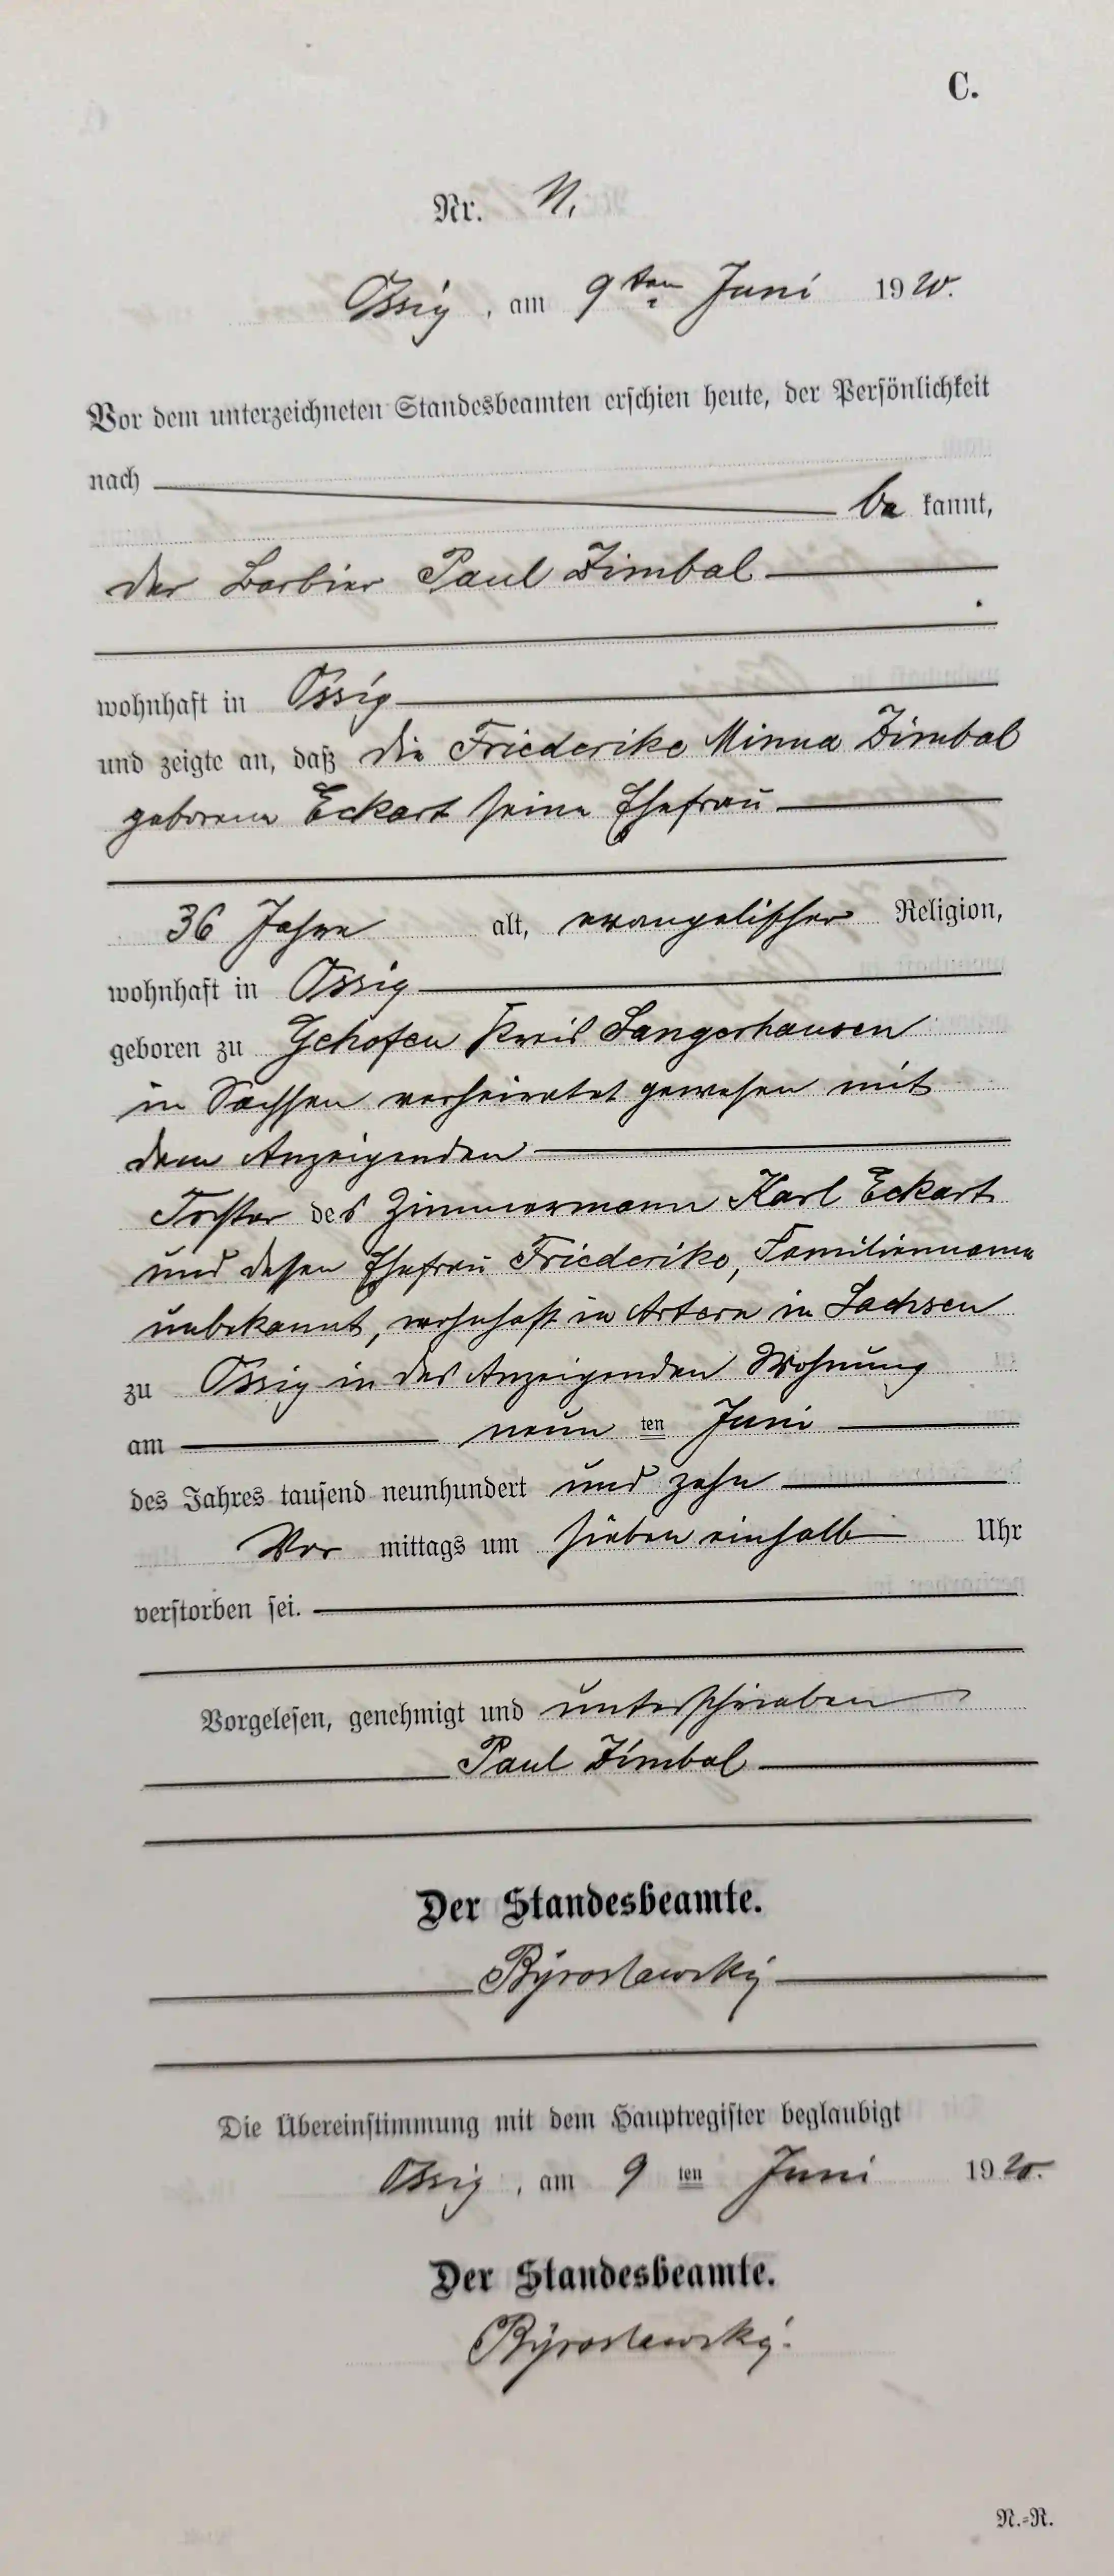 C.
Nr. 11.
Ossig, am 9ten Juni 1910.
Vor dem unterzeichneten Standesbeamten erschien heute, der Persönlichkeit
nach
be kannt,
der Barbier Paul Zimbal
wohnhaft in Ossig
und zeigte an, daß die Friederike Minna Zimbal
geborene Eckart seine Ehefrau
36 Jahre alt, evangelischer Religion,
wohnhaft in Ossig
geboren zu Gehofen Kreis Sangerhausen
in Sachsen verheiratet gewesen mit
dem Anzeigenden
Tochter des Zimmermann Karl Eckart
und dessen Ehefrau Friederike, Familienname
unbekannt, wohnhaft in Artern in Sachsen
zu Ossig in des Anzeigenden Wohnung
am neun ten Juni
des Jahres tausend neunhundert und zehn
Vor mittags um sieben einhalb Uhr
verstorben sei.
Vorgelesen, genehmigt und unterschrieben
Paul Zimbal
Der Standesbeamte.
Die Übereinstimmung mit dem Hauptregister beglaubigt
Ossig, am 9 ten Juni 1910.
Der Standesbeamte.
N.=R.